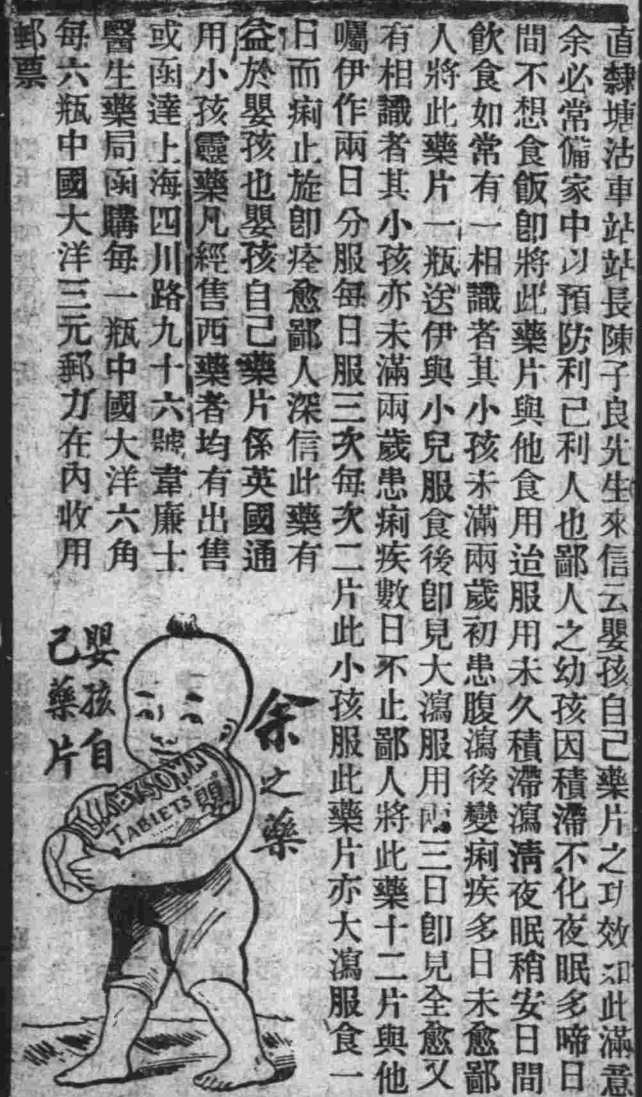 直隸塘沽車站站長陳子良先生來信云嬰孩自己藥片之功效如此滿意
余必常備家中以預防利己利人也鄙人之幼孩因積滯不化夜眠多啼日
間不想食飯卽將此藥片與他食用迨服用未久積滯瀉淸夜眠稍安日間
飲食如常有一相識者其小孩未滿兩歲初患腹瀉後變痢疾多日未愈鄙
人將此藥片一瓶送伊與小兒服食後卽見大瀉服用兩三日卽見全愈又
有相識者其小孩亦未滿兩歲患痢疾數日不止鄙人將此藥十二片與他
囑伊作兩日分服每日服三次每次二片此小孩服此藥片亦大瀉服食一
日而痢止旋卽痊愈鄙人深信此藥有
益於嬰孩也嬰孩自己藥片係英國通
用小孩靈藥凡經售西藥者均有出售
或函達上海四川路九十六號韋廉士
醫生藥局函購每一瓶中國大洋六角
每六瓶中國大洋三元郵力在內收用
郵票
余之藥
嬰孩自
己藥片
TABLETS
嬰